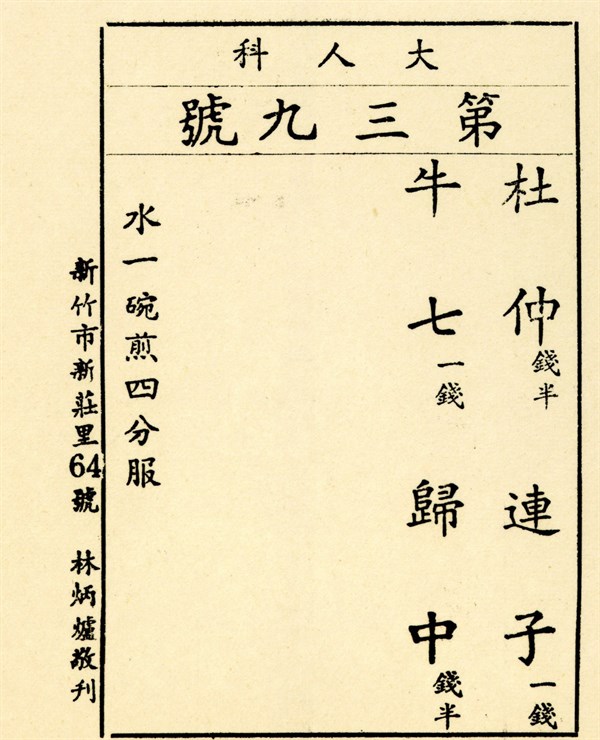 大人科
第三九號
杜仲錢半 連子一錢
牛七一錢 歸中錢半
水一碗煎四分服
新竹市新莊里64號 林炳爐敬刊